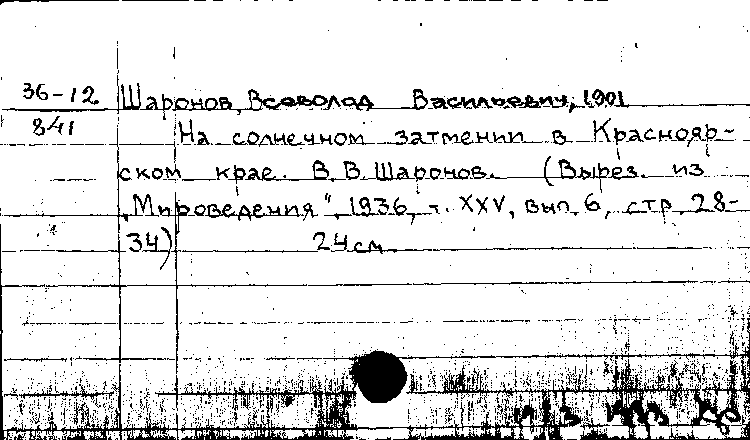 36-12
841
Шаронов, Всеволод Васильевич, 1901
На солнечном затмении в Краснояр-
ском крае. В. В. Шаронов. (Вырез. из
"Мироведения", 1936, т. XXV, вып. 6, стр. 28-
34) 24 см.